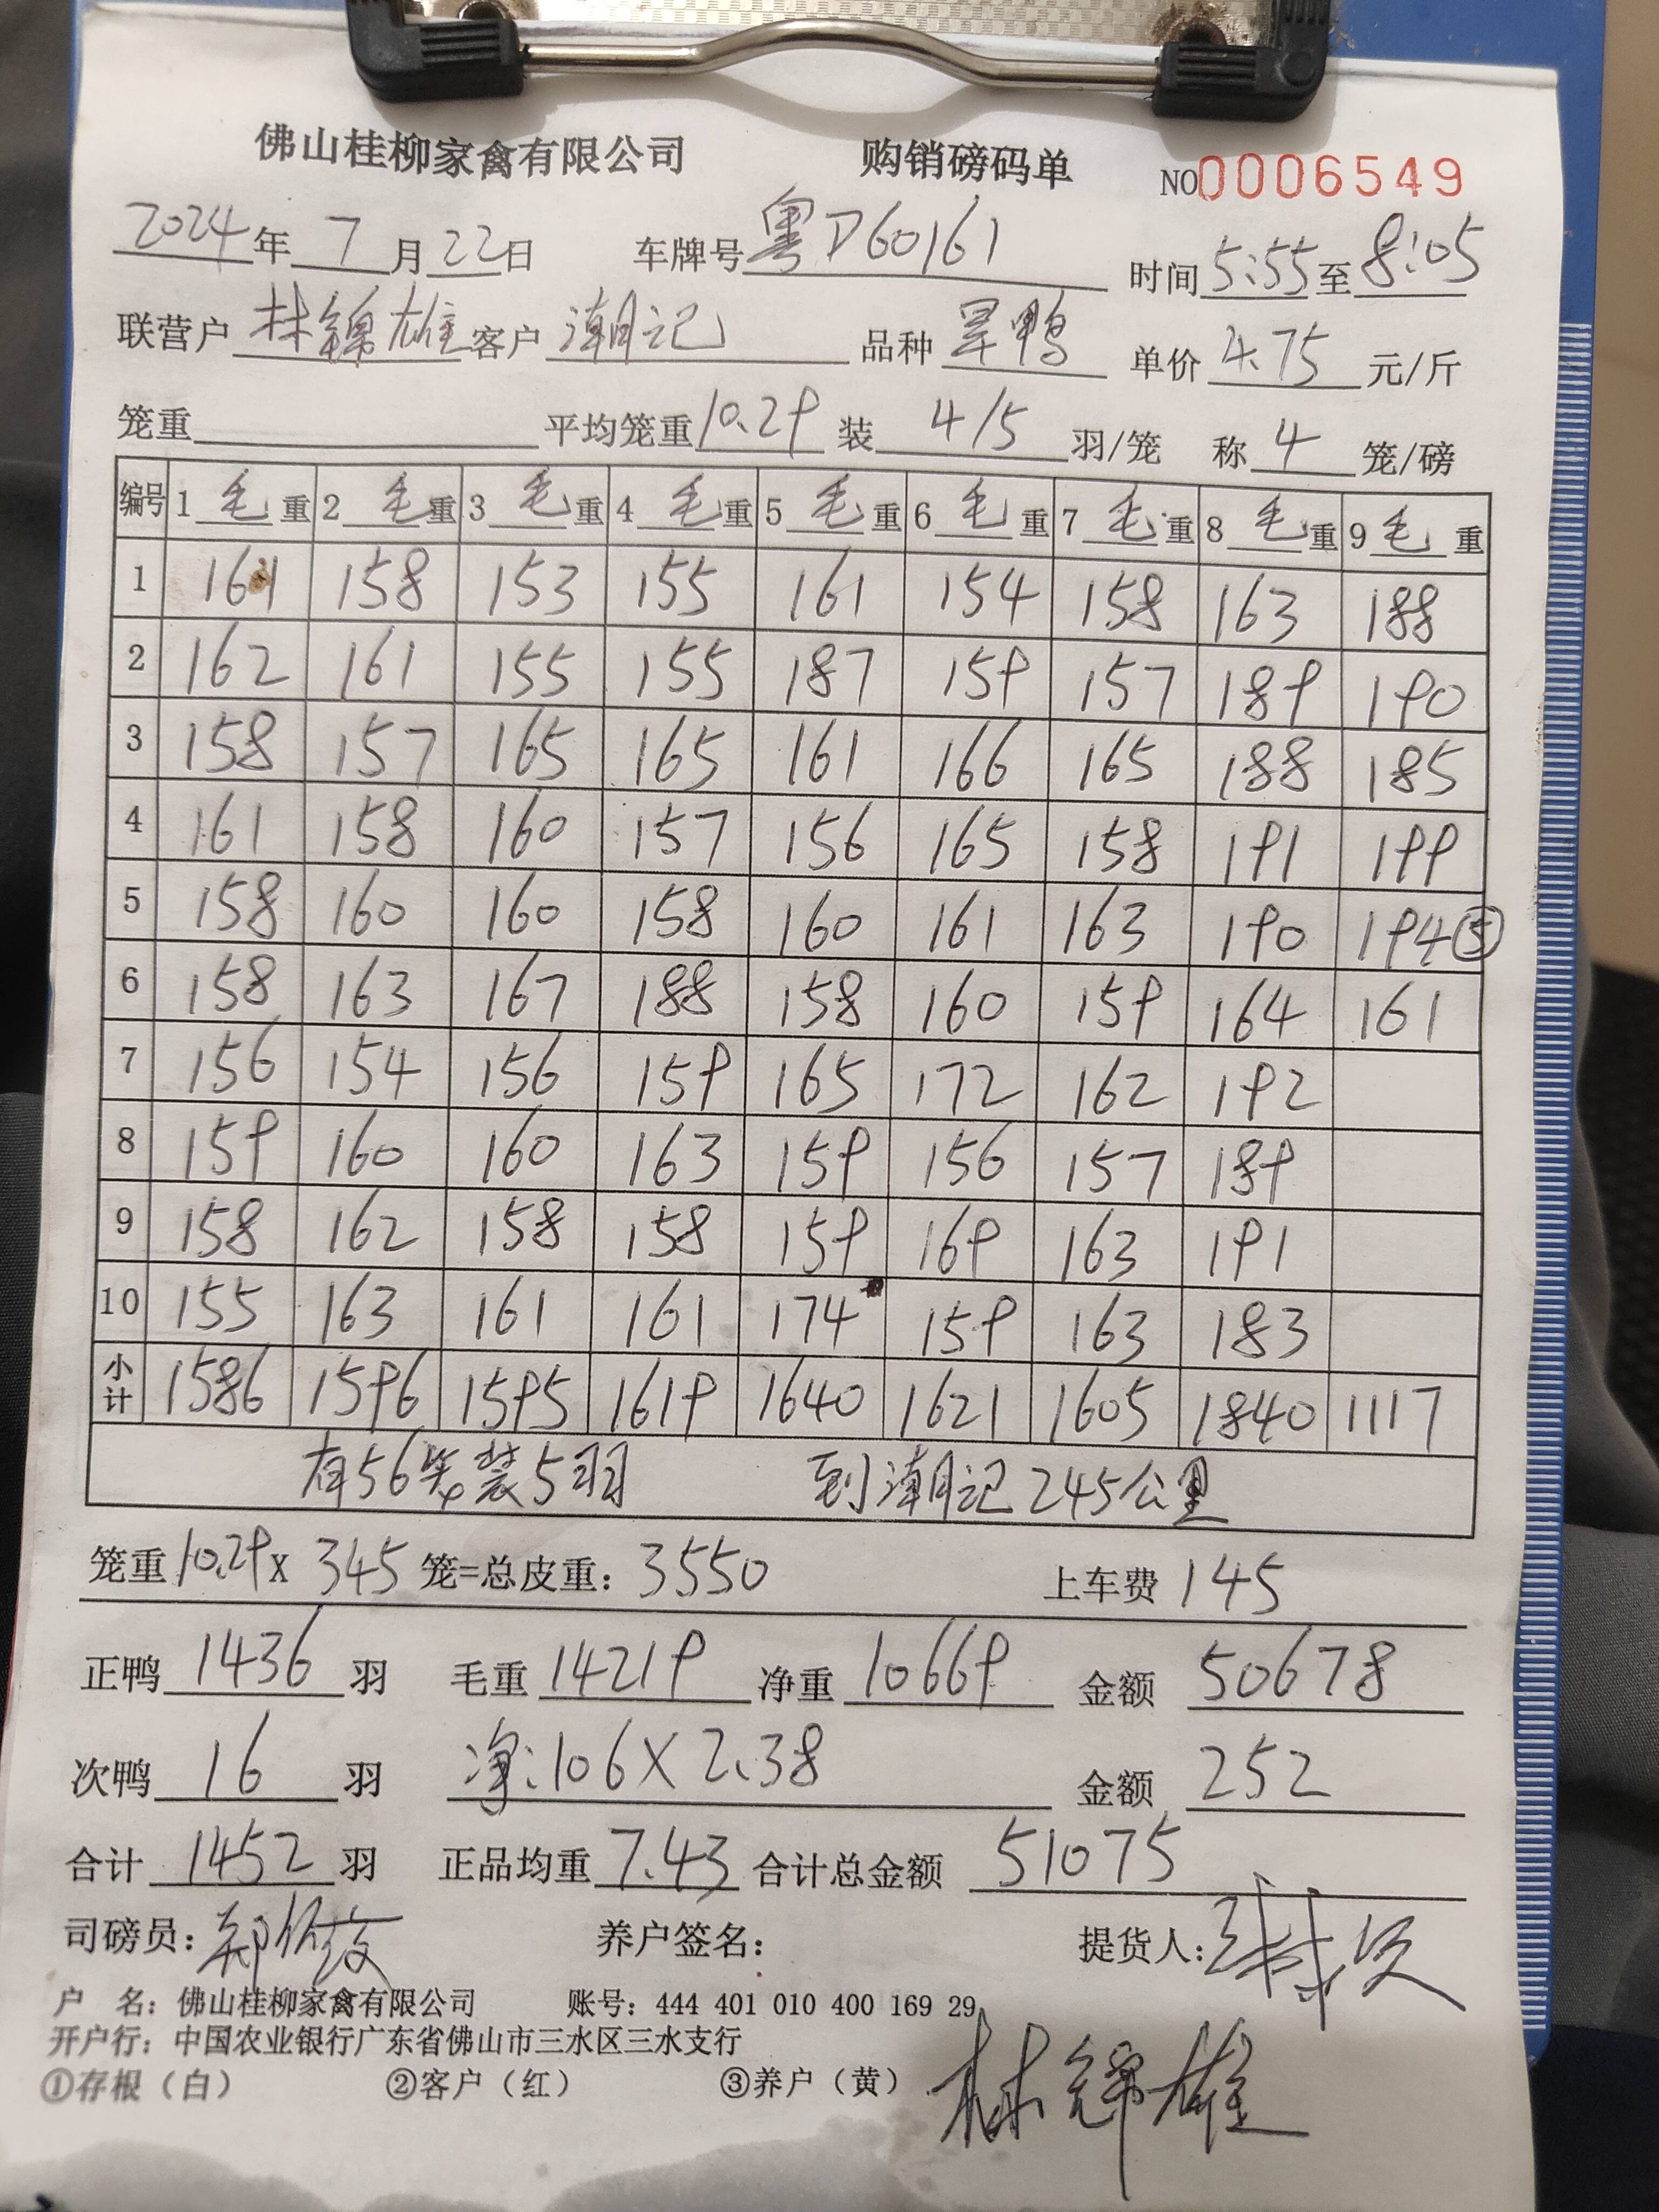 佛山桂柳家禽有限公司 购销磅码单 NO0006549
2024年7月22日 车牌号粤D60161 时间5:55至8:05
联营户林锦雄客户潮记 品种旱鸭 单价4.75元/斤
笼重 平均笼重10.29 装4/5羽/笼 称4笼/磅
编号 1毛重 2毛重 3毛重 4毛重 5毛重 6毛重 7毛重 8毛重 9毛重
1 161 158 153 155 161 154 158 163 188
2 162 161 155 155 187 159 157 189 190
3 158 157 165 165 161 166 165 188 185
4 161 158 160 157 156 165 158 191 199
5 158 160 160 158 160 161 163 190 194⑤
6 158 163 167 188 158 160 159 164 161
7 156 154 156 159 165 172 162 192
8 159 160 160 163 159 156 157 189
9 158 162 158 158 159 169 163 191
10 155 163 161 161 174 159 163 183
小计 1586 1596 1595 1619 1640 1621 1605 1840 1117
有56笼装5羽 到潮记245公里
笼重10.29X345笼=总皮重：3550 上车费145
正鸭1436羽 毛重14219 净重10669 金额50678
次鸭16羽 净:106X2.38 金额252
合计1452羽 正品均重7.43 合计总金额51075
司磅员： 养户签名： 提货人：
户 名：佛山桂柳家禽有限公司 账号：444 401 010 400 169 29
开户行：中国农业银行广东省佛山市三水区三水支行
①存根（白） ②客户（红） ③养户（黄） 林锦雄